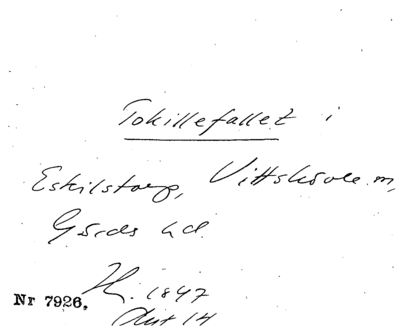 Tokillefallet i
Eskilstorp, Vittskövle m,
Gärds hd.
H. 1847
Nr 7926.
Avt 14